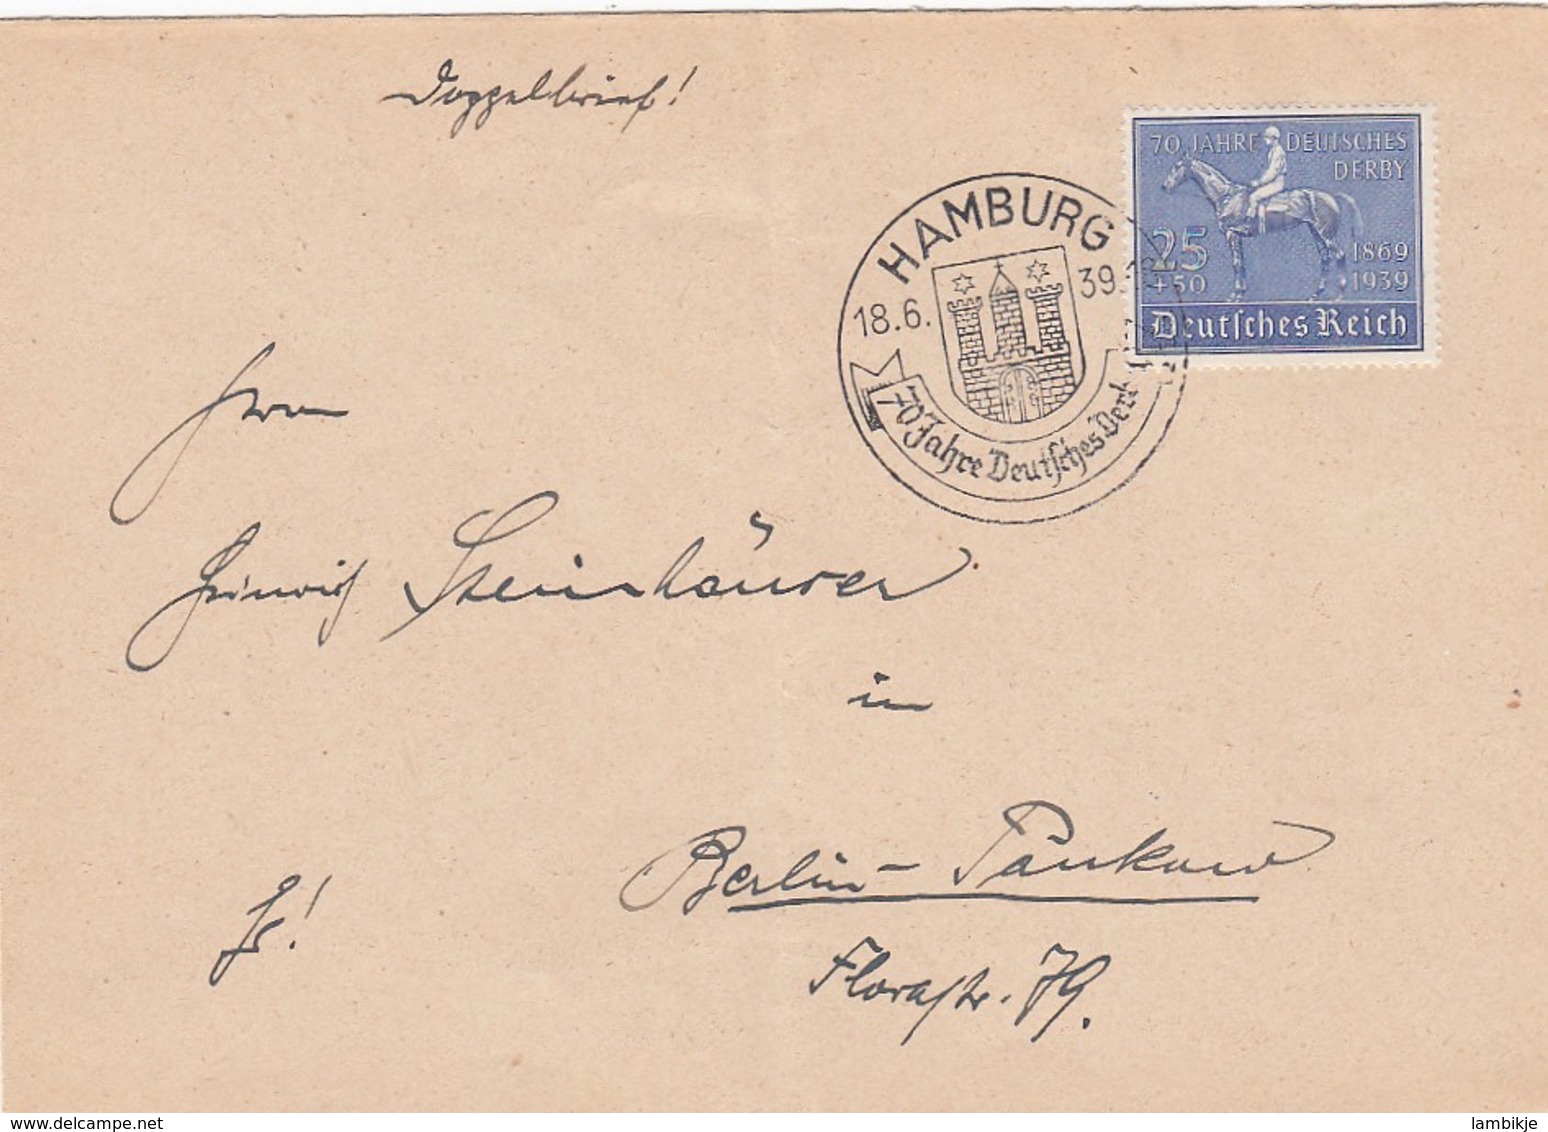 Doppelbrief!
70 JAHRE DEUTSCHES
DERBY
25
+50
1869
1939
Deutsches Reich
HAMBURG
18.6. 39.
70 Jahre Deutsches Derb
Herrn
Heinrich Steinhäuser
in
Berlin-Pankow
Florastr. 79.
delcampe.net
lambikje